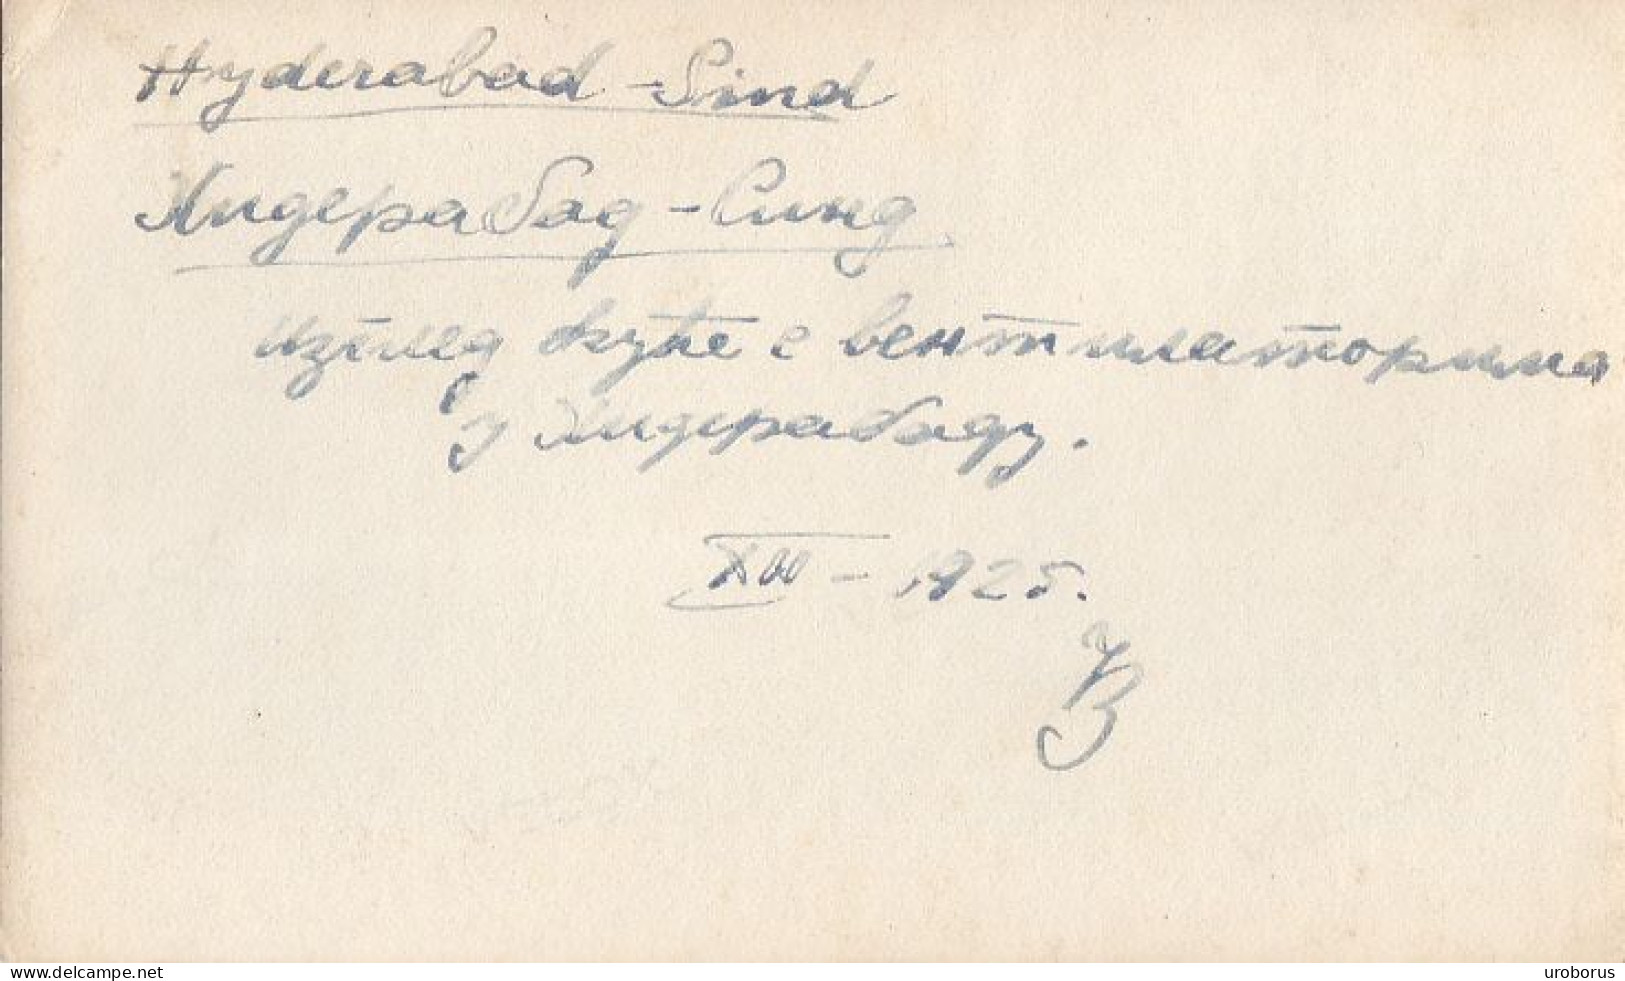 Hyderabad - Sind
Хидерабад - Синд
изглед куће с вентилаторима
у Хидерабаду.
XII - 1925.
www.delcampe.net
uroborus